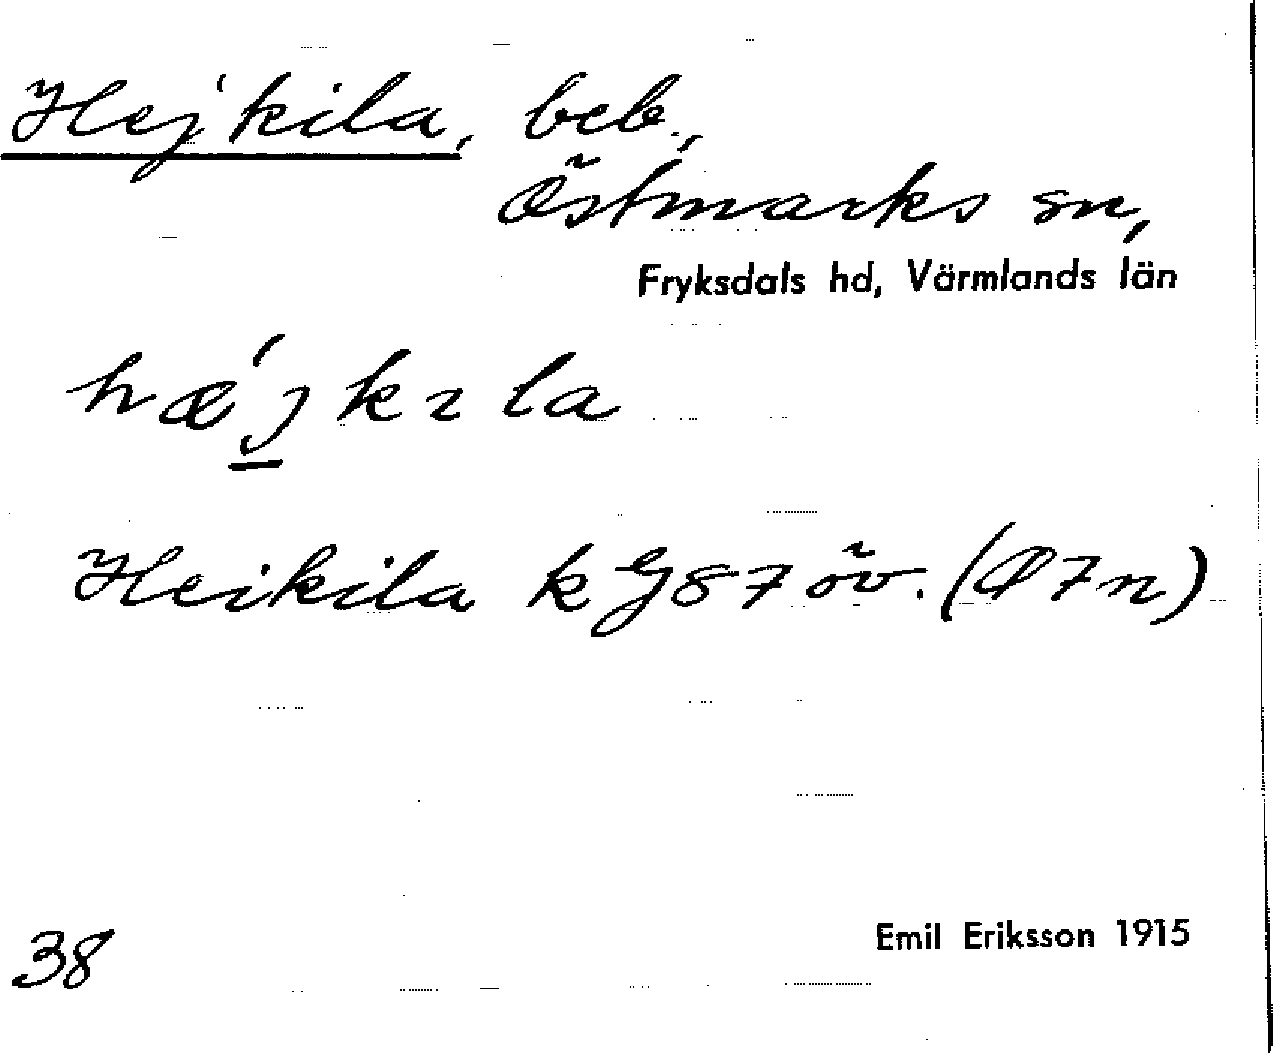 Hej'kila, beb.,
Östmarks sn,
Fryksdals hd, Värmlands län
hæ´jkɩla
Heikila k G87 öv. (Ø7n)
38
Emil Eriksson 1915